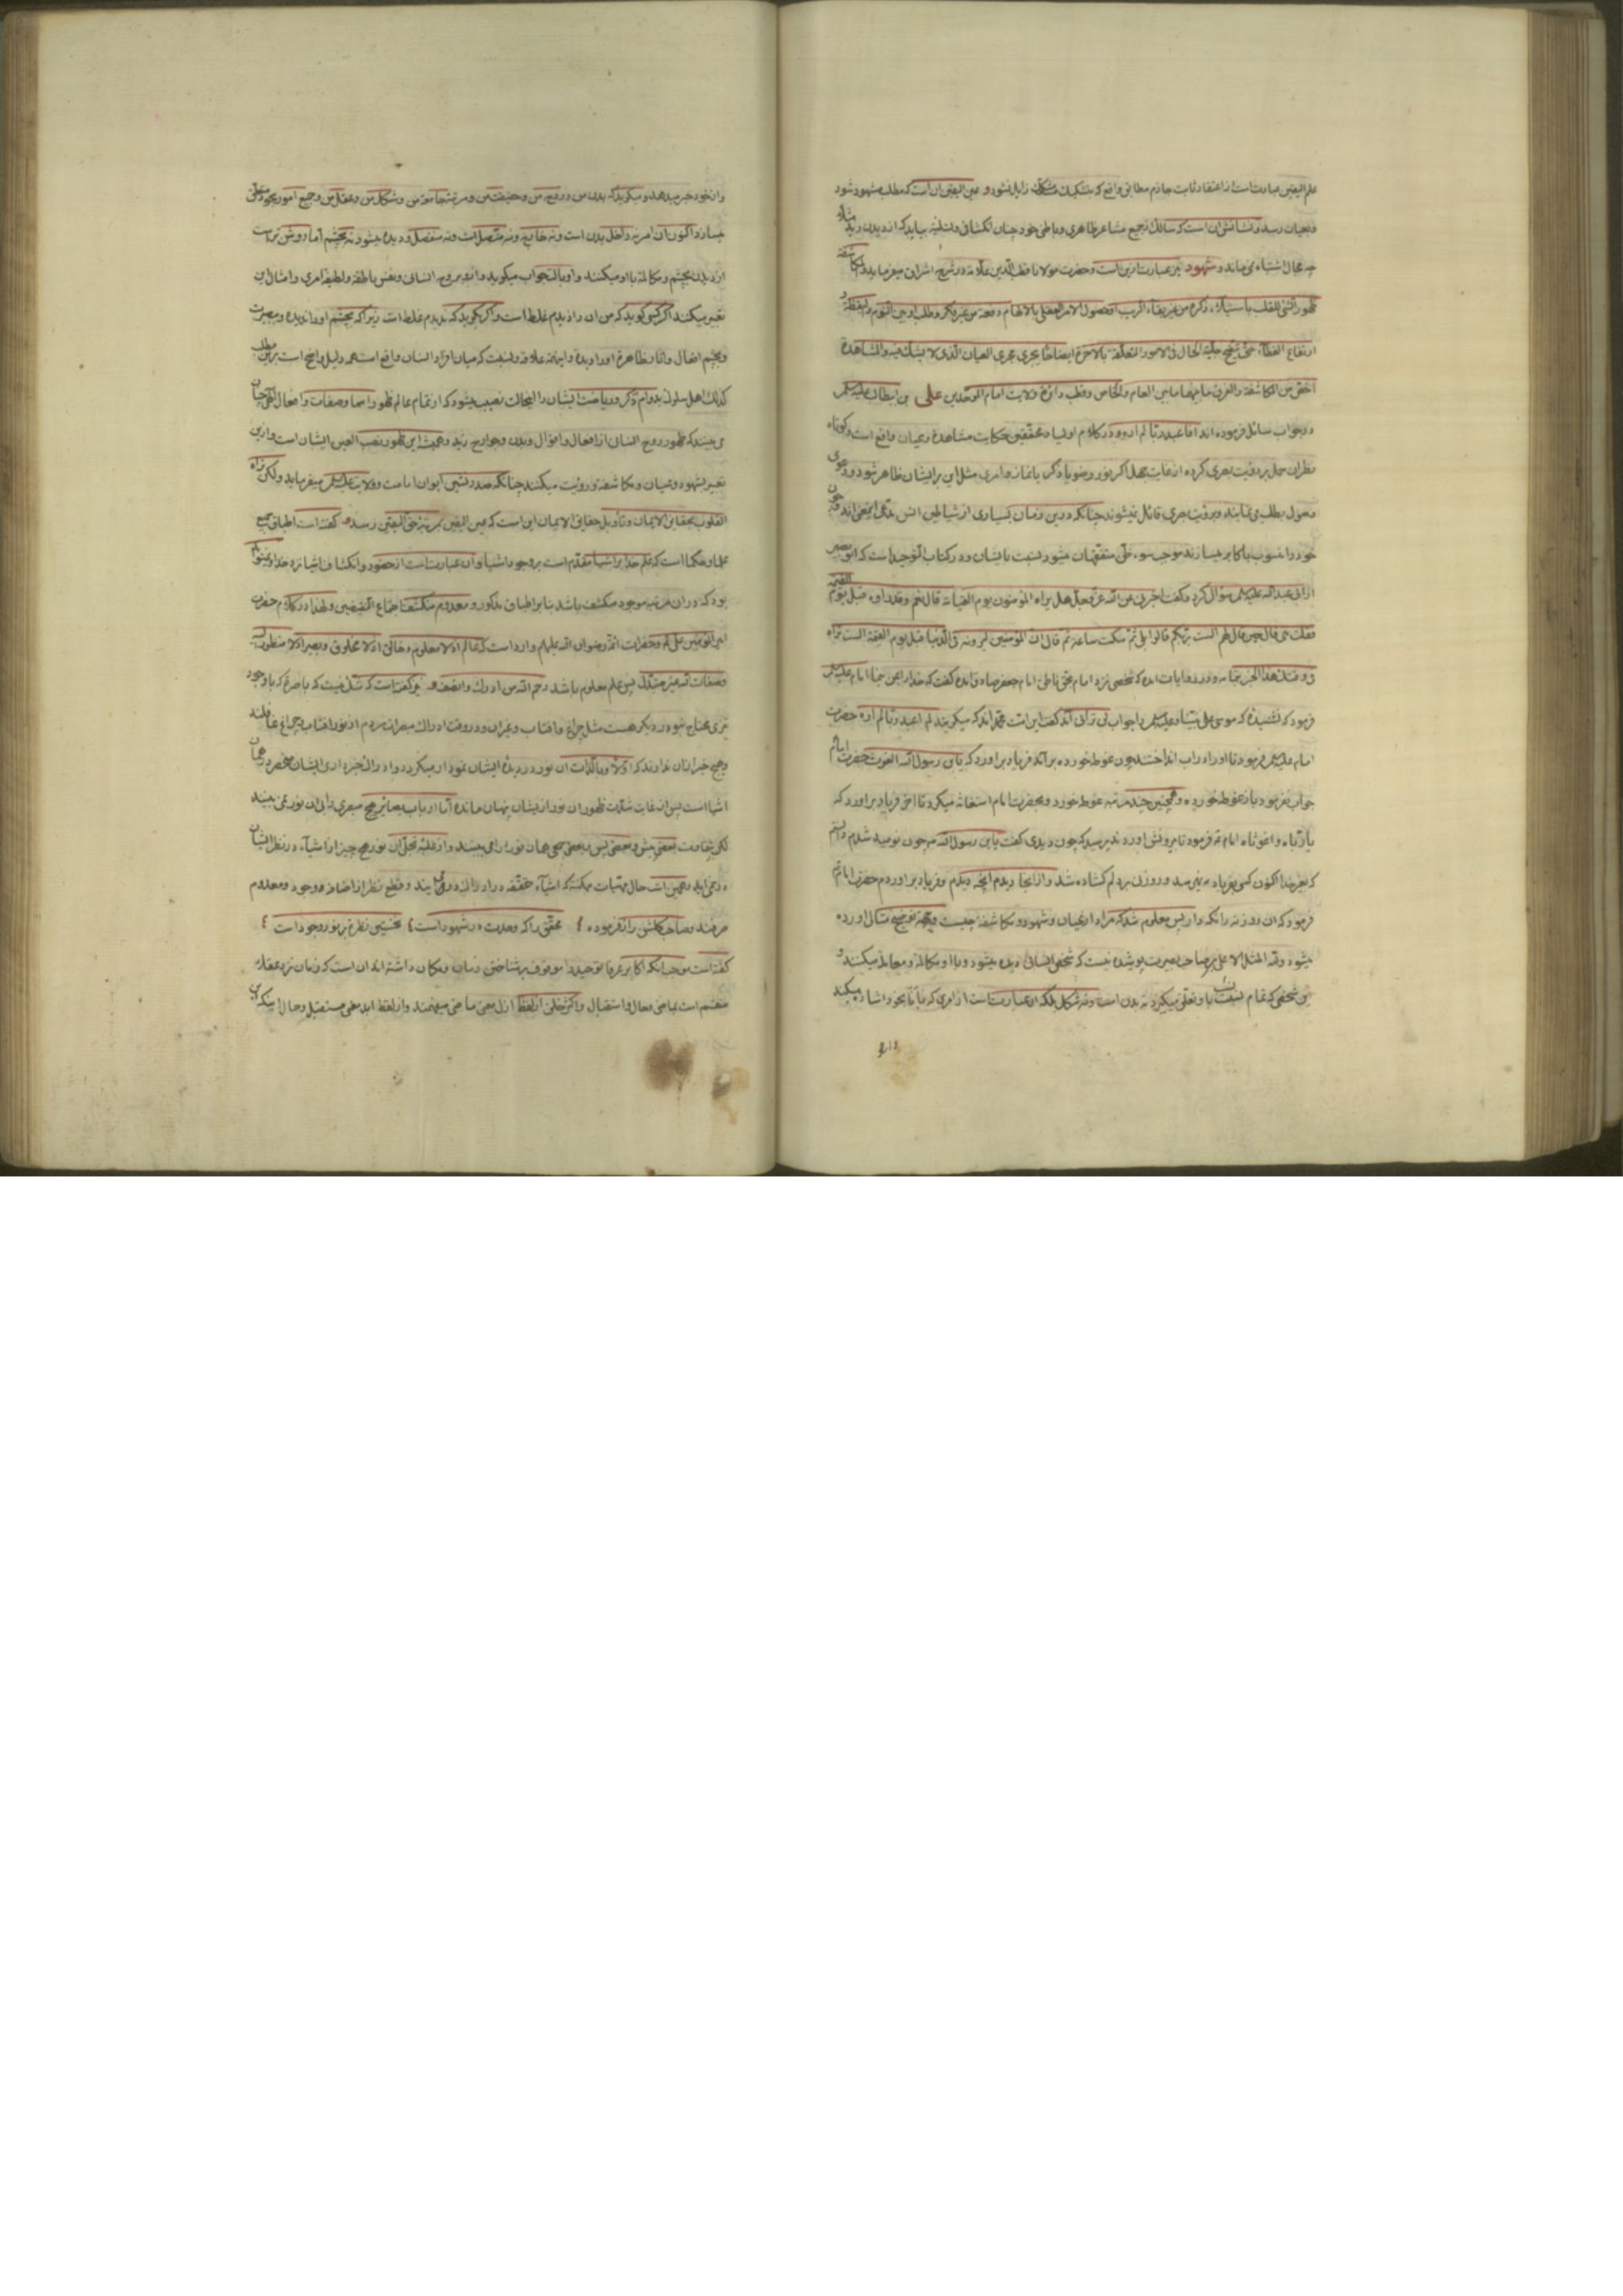 علم الیقین عبارتست از اعتقاد ثابت جازم مطابق واقع که بتشکیک مشکک زایل نشود و عین الیقین آن است که مطلب مشهود شود
و بعیان رسد و نشانش آن است که سالک بجمیع مشاعر ظاهری و باطنی خود چنان انکشافی بیابد که از دیدن
چه مجال اشتباه نمی‌ماند و شهود نیز عبارت ازین است و حضرت مولانا قطب الدین علامه در شرح اشراق میفرماید المکاشفة
ظهور الشئ للقلب باستیلاء ذکره من غیر بقاء الریب او حصول الامر العقلی بالالهام دفعة من غیر فکر و طلب او بین النوم والیقظة
ارتفاع الغطاء حتی یتضح جلیة الحال فی الامور المتعلقة بالاخرة ایضاحا یجری مجری العیان الذی لا یشک فیه والمشاهدة
اخص من المکاشفة والفرق ما بینهما ما بین العام والخاص و قطب دائرة ولایت امام الموحدین علی بن ابیطالب علیه السلام
در جواب سائل فرموده‌اند افاعبد ربا لم اره و در کلام اولیا و محققین حکایت مشاهدة و عیان واقع است و کوتاه
نظران حمل بر رؤیت بصری کرده از غایت جهل اکر نور وضو یا ذکر یا نماز و امری مثل این بر ایشان ظاهر شود دعوی
وصول بمطلب می‌نمایند و برؤیت بصری قائل میشوند چنانکه درین زمان بسیاری از شیاطین انس مدعی اینمعنی‌اند و چون
خود را منسوب باکابر میسازند موجب سوء ظن متفقهان میشود نسبت بایشان و در کتاب التوحید است که ابو بصیر
از ابی عبد الله علیه السلام سؤال کرد و کفت اخبرنی عن الله عز و جل هل یراه المؤمنون یوم القیامة قال نعم و قد راوه قبل یوم القیمة
فقلت متی قال حین قال لهم الست بربکم قالوا بلی ثم سکت ساعة ثم قال ان المؤمنین لیرونه فی الدنیا قبل یوم القیمة الست تراه
فی وقتک هذا الخبر بتمامه و در روایات آمده که شخصی نزد امام بحق ناطق امام جعفر صادق آمده کفت که خدا را بمن بنما امام علیه السلام
فرمود که نشنیدۀ که موسی علی نبینا و علیه السلام را جواب لن ترانی آمد کفت این امت محمد اند که میکویند لم اعبد ربا لم اره حضرت
امام علیه السلام فرمود تا او را در اب انداختند چون غوطه خورده برآمد فریاد براورد که یابن رسول الله الغوث حضرت امام
جواب نفرمود باز غوطه خورده و همچنین چند مرتبه غوطه خورد و بحضرت امام استغاثه میکرد تا آخر فریاد براورد که
یا رباه وا غوثاه امام فرمود تا بیرونش اوردند پرسید که چون دیدی کفت یابن رسول الله من چون نومید شدم دانستم
که بغیر خدا اکنون کسی بفریاد من نمیرسد و روزنی بر دلم کشاده شد و از انجا دیدم انچه دیدم و فریاد براوردم حضرت امام
فرمود که ان روزنه را نکه دار پس معلوم شد که مراد از عیان و شهود و مکاشفه چیست و بجهة توضیح مثالی اورده
میشود ولله المثل الاعلی بر صاحب بصیرت پوشیده نیست که شخص انسانی دیده میشود و با او مکالمه و معامله میکنند و
و شخصی که تمام نسبت باو تعلق میکیرد نه بدن است و نه شکل بلکه ان عبارتست از امری که بانا بخود اشاره میکند
و از خود خبر میدهد و میکوید که بدن من و روح من و حقیقت من و مرتبۀ جامعۀ من و شکل من و عقل من و جمیع امور بخود متعلق
میسازد اکنون ان امر نه داخل بدن است و نه خارج و نه متصل است و نه منفصل و دیده میشود نه بچشم اما روشن‌تر است
از دیدن بچشم و مکالمه با او میکنند و او بانا جواب میکوید و از و بروح انسانی و نفس ناطقه و لطیفۀ امری و امثال این
تعبیر میکنند اکر کسی کوید که من ان را دیدم غلط است و اکر بکوید که ندیدم غلط است زیرا که بچشم او را ندیده و ببصیرت
و بچشم افعال و اثار ظاهرۀ او را دیده و اینهمه علاقه و نسبت که میان افراد انسان واقع است همه دلیل واضح است برین مطلب
کذلک اهل سلوک بدوام ذکر و ریاضت ایشان را اینحالت نصیب میشود که از تمام عالم ظهور اسما و صفات و افعال الهی چنان
می بینند که ظهور روح انسان از افعال و اقوال و بدن و جوارح زید و همیشه این ظهور نصب العین ایشان است و ازین
تعبیر بشهود و عیان و مکاشفه و رؤیت میکنند چنانکه صدر نشین ایوان امامت و ولایت علیه السلام میفرماید ولکن تراه
القلوب بحقایق الایمان و تأویل حقایق الایمان این است که عین الیقین بمرتبۀ حق الیقین رسد کفته است اطباق جمیع
علما و حکما است که علم خدا بر اشیا مقدم است بر وجود اشیا و ان عبارتست از حضور و انکشاف اشیا نزد خدا و نمیتواند
بود که در ان مرتبه موجود منکشف باشد بنا بر اطباق مذکور و معدوم منکشف اجتماع النقیضین و لهذا در کلام حضرت
امیر المؤمنین علی و حضرات ائمه رضوان الله علیهم وارد است که عالم اذ لا معلوم و خالق اذ لا مخلوق و بصیر اذ لا منظور الیه
و صفات الله غیر متبدل پس علم معلوم باشد رحم الله من ادرک وانصف و نیز کفته است که شک نیست که باصره که با وجود
نوری محتاج بنور دیکر هست مثل چراغ و افتاب و غیر ان و در وقت ادراک مبصرات مردم از نور افتاب و چراغ غافلند
و هیچ خبر از ان ندارند که اولا و بالذات ان نور در دیدۀ ایشان نمودار میکردد و ادراک ایشان منحصر در همان
اشیا است پس از غایت شدت ظهور ان نور از ایشان پنهان مانده اما ارباب بصائر هیچ مبصری را بی ان نور نمی بینند
لکن بتفاوت بعضی پیش و بعضی پس و بعضی همان نور را می بینند و از غلبۀ تجلی ان نور هیچ چیز از اشیاء در نظر ایشان
در نمی اید و همین است حال مهیات ممکنه که اشیاء حقیقه در ادراک و قطع نظر از اضافه وجود و معدوم
صرفند و صاحب کلشن راز فرموده محقق را که وحدت در شهود است نخستین نظره بر نور وجود است
کفته است موجب انکه اکابر عرفا توحید را موقوف بر شناختن زمان و مکان داشته‌اند ان است که زمان نزد عقلا
منقسم است بماضی و حال و استقبال و اکثر خلق از لفظ ازل معنی ماضی میفهمند و از لفظ ابد معنی مستقبل و حال